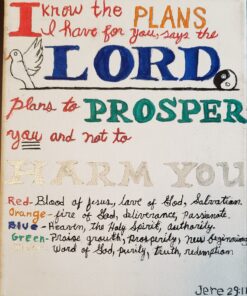 I know the PLANS
I have for you, says the
LORD
plans to PROSPER
you and not to
HARM YOU
Red-Blood of Jesus, love of God, Salvation
Orange-fire of God, deliverance, Passionate.
Blue-Heaven, the Holy Spirit, authority.
Green-Praise growth, Prosperity, new beginning
Word of God, purity, truth, redemption
Jere 29:11